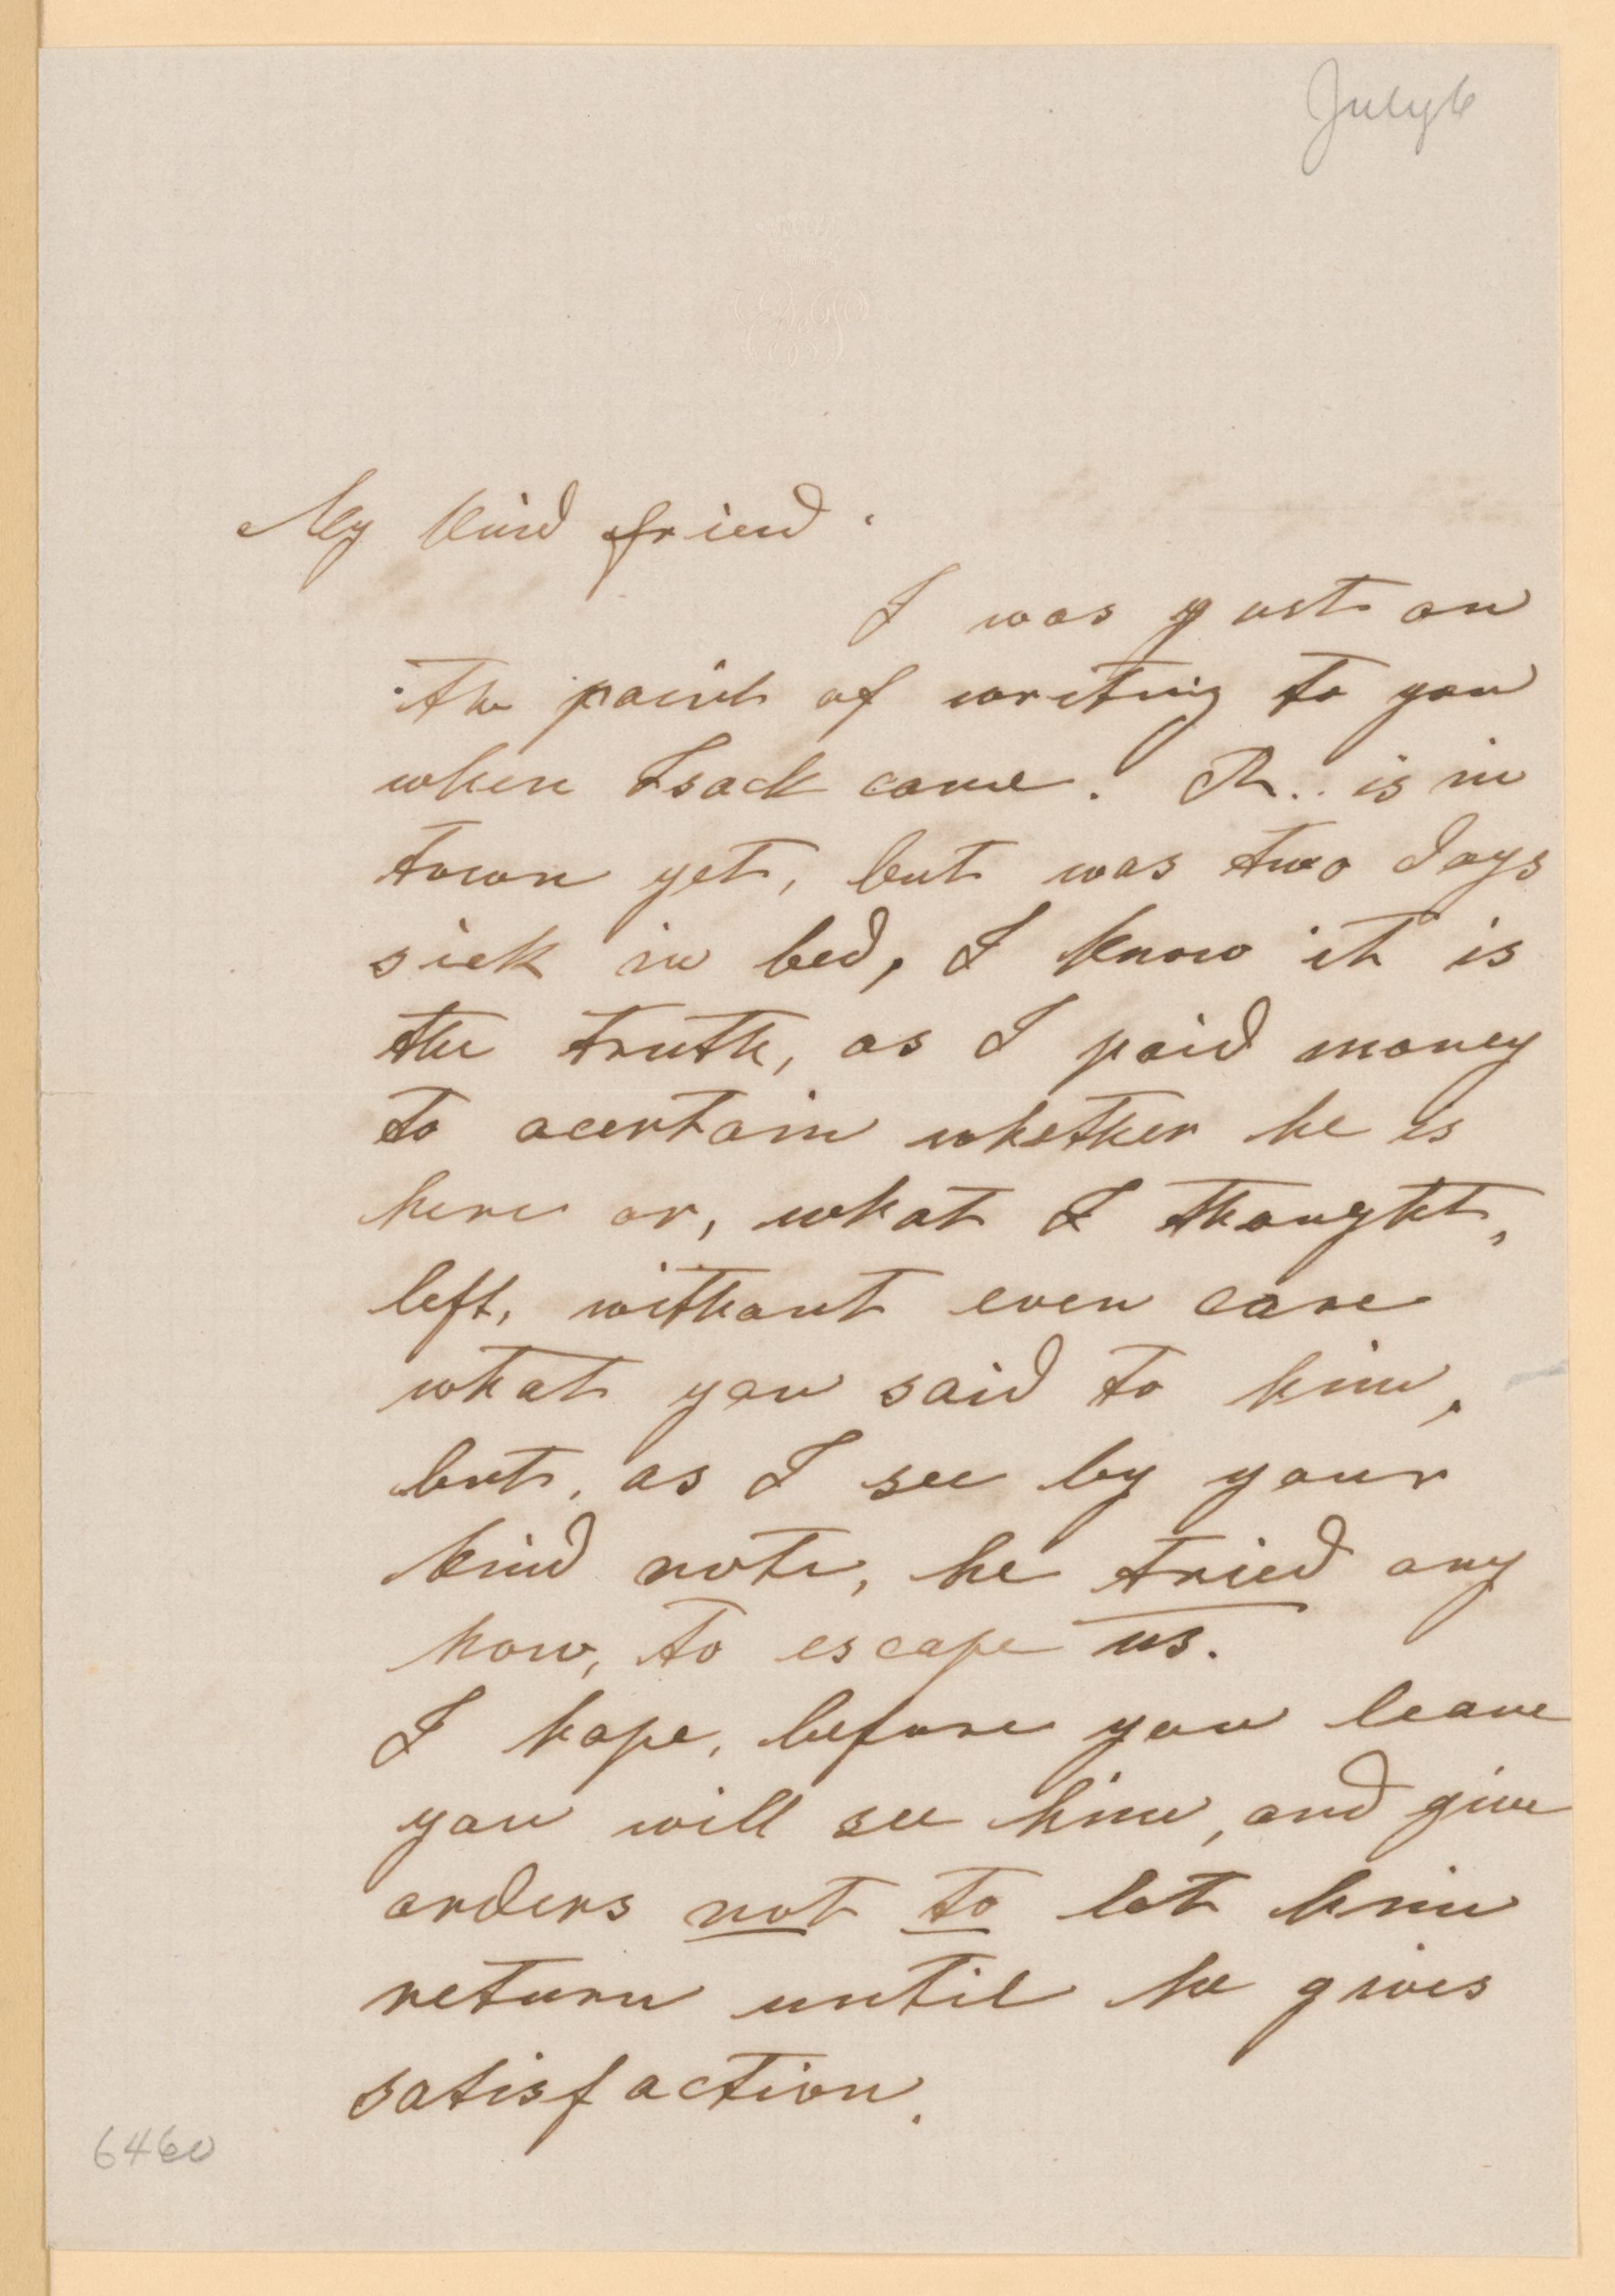 July 6
My kind friend.
I was yust on
the point of writing to you
when Isack came. R.. is in
town yet, but was two days
sick in bed, I know it is
the truth, as I paid money
to acertain whether he is
here or, what I thought,
left, without even care
what you said to him,
but, as I see by your
kind note, he tried any
how, to escape us.
I hope, before you leave
you will see him, and give
orders not to let him
return until he gives
satisfaction.
6460